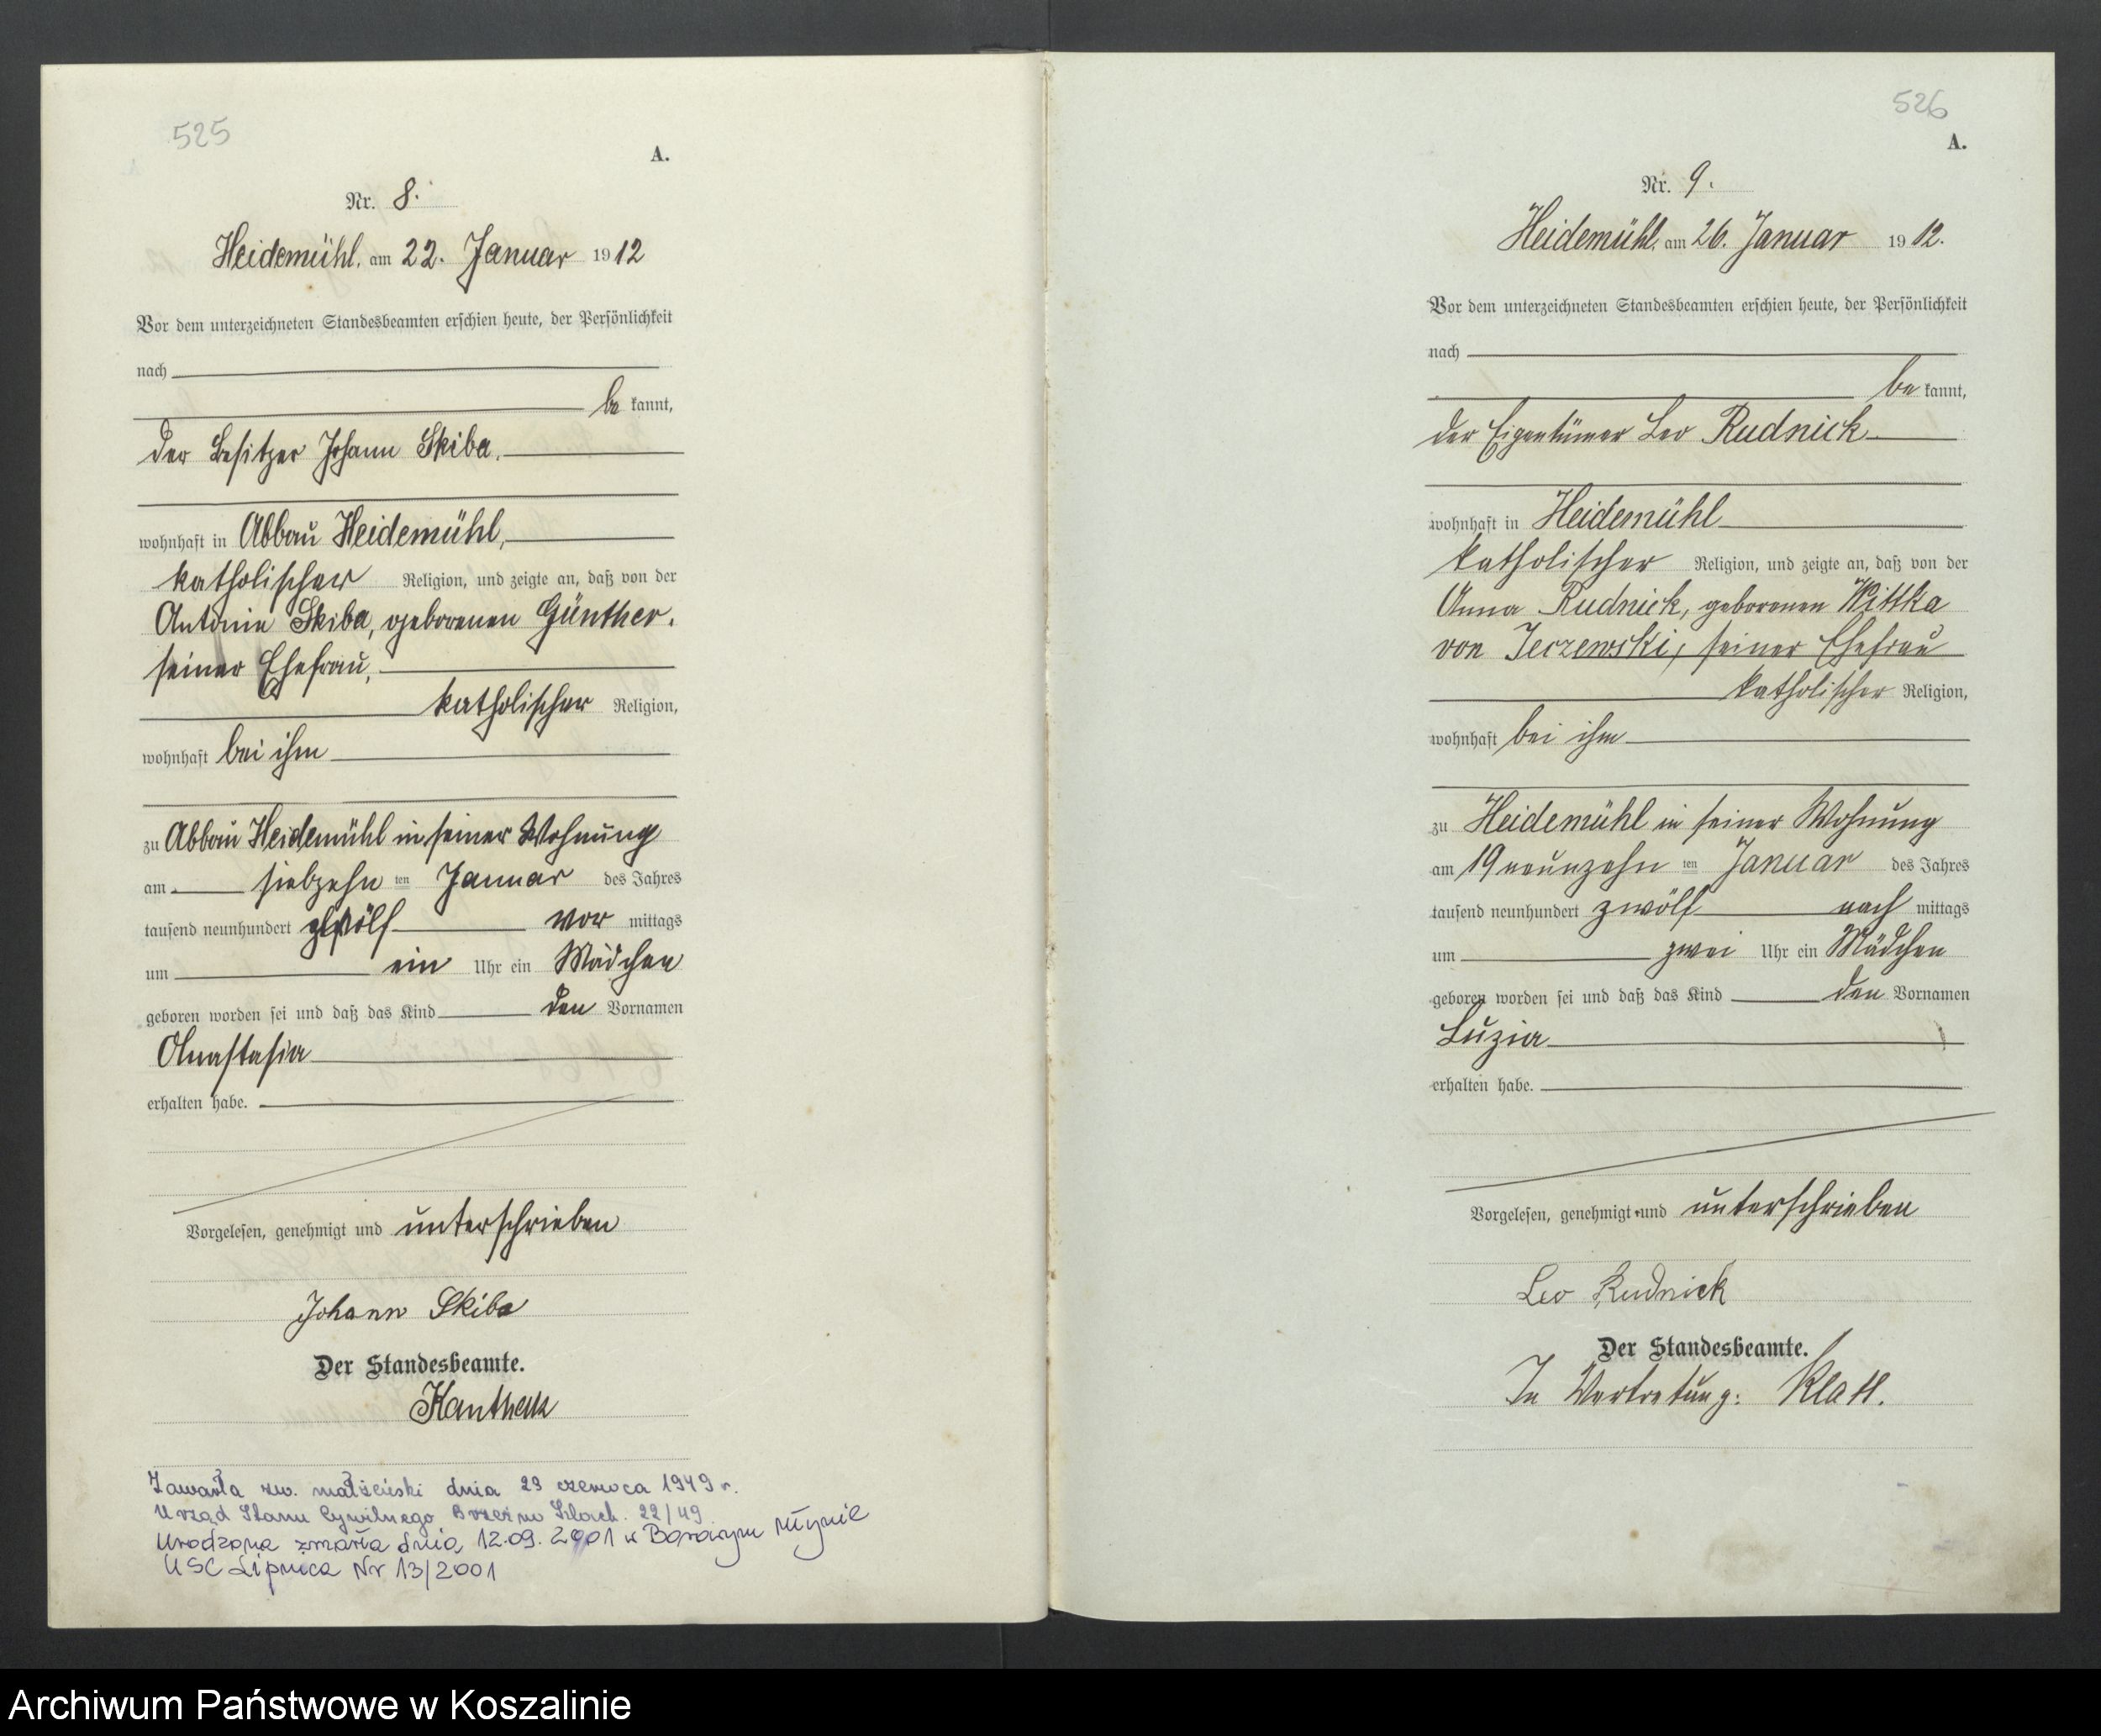 525
A.
Nr. 8.
Heidemühl, am 22. Januar 1912
Vor dem unterzeichneten Standesbeamten erschien heute, der Persönlichkeit
nach
be kannt,
der Besitzer Johann Skiba,
wohnhaft in Abbau Heidemühl,
katholischer Religion, und zeigte an, daß von der
Antonie Skiba, geborenen Günther,
seiner Ehefrau,
katholischer Religion,
wohnhaft bei ihm
zu Abbau Heidemühl in seiner Wohnung
am siebzehn ten Januar des Jahres
tausend neunhundert zwölf vor mittags
um ein Uhr ein Mädchen
geboren worden sei und daß das Kind den Vornamen
Anastasia
erhalten habe.
Vorgelesen, genehmigt und unterschrieben
Johann Skiba
Der Standesbeamte.
Kanthak
Zawarła zw. małżeński dnia 29 czerwca 1949 r.
Urząd Stanu Cywilnego Brzeźno Szlach. 22/49
Urodzona zmarła dnia 12.09.2001 w Borowym Młynie
USC Lipnica Nr 13/2001
526
A.
Nr. 9.
Heidemühl, am 26. Januar 1912.
Vor dem unterzeichneten Standesbeamten erschien heute, der Persönlichkeit
nach
be kannt,
der Eigentümer Leo Rudnick
wohnhaft in Heidemühl
katholischer Religion, und zeigte an, daß von der
Anna Rudnick, geborenen Wittka
von Jerzewski, seiner Ehefrau
katholischer Religion,
wohnhaft bei ihm
zu Heidemühl in seiner Wohnung
am 19 neunzehn ten Januar des Jahres
tausend neunhundert zwölf nach mittags
um zwei Uhr ein Mädchen
geboren worden sei und daß das Kind den Vornamen
Luzia
erhalten habe.
Vorgelesen, genehmigt und unterschrieben
Leo Rudnick
Der Standesbeamte.
In Vertretung: Klatt.
Archiwum Państwowe w Koszalinie